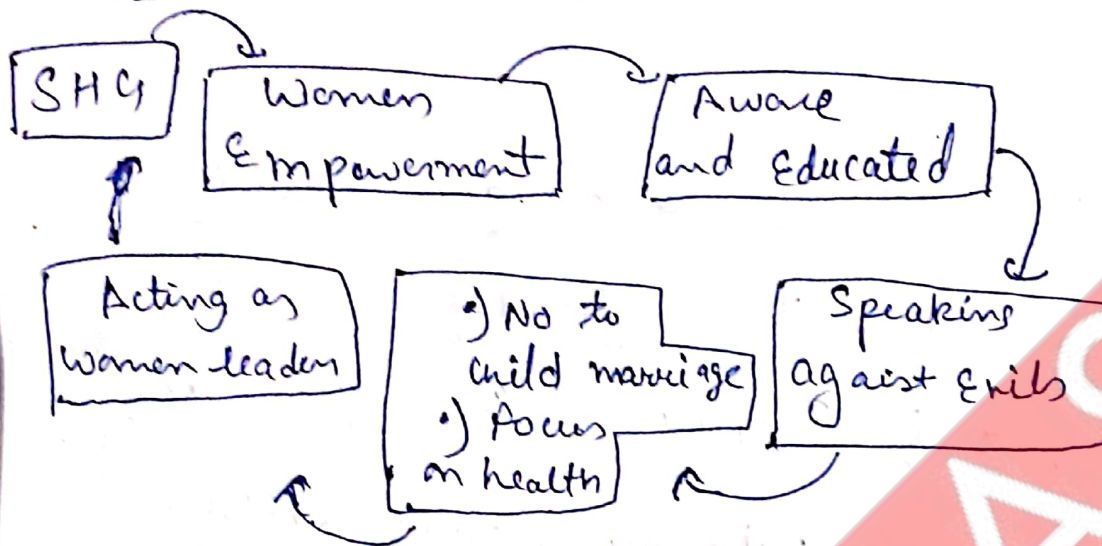 SHG
Women
Empowerment
Aware
and Educated
Speaking
against Evils
•) No to
child marriage
•) focus
on health
Acting as
women leaders